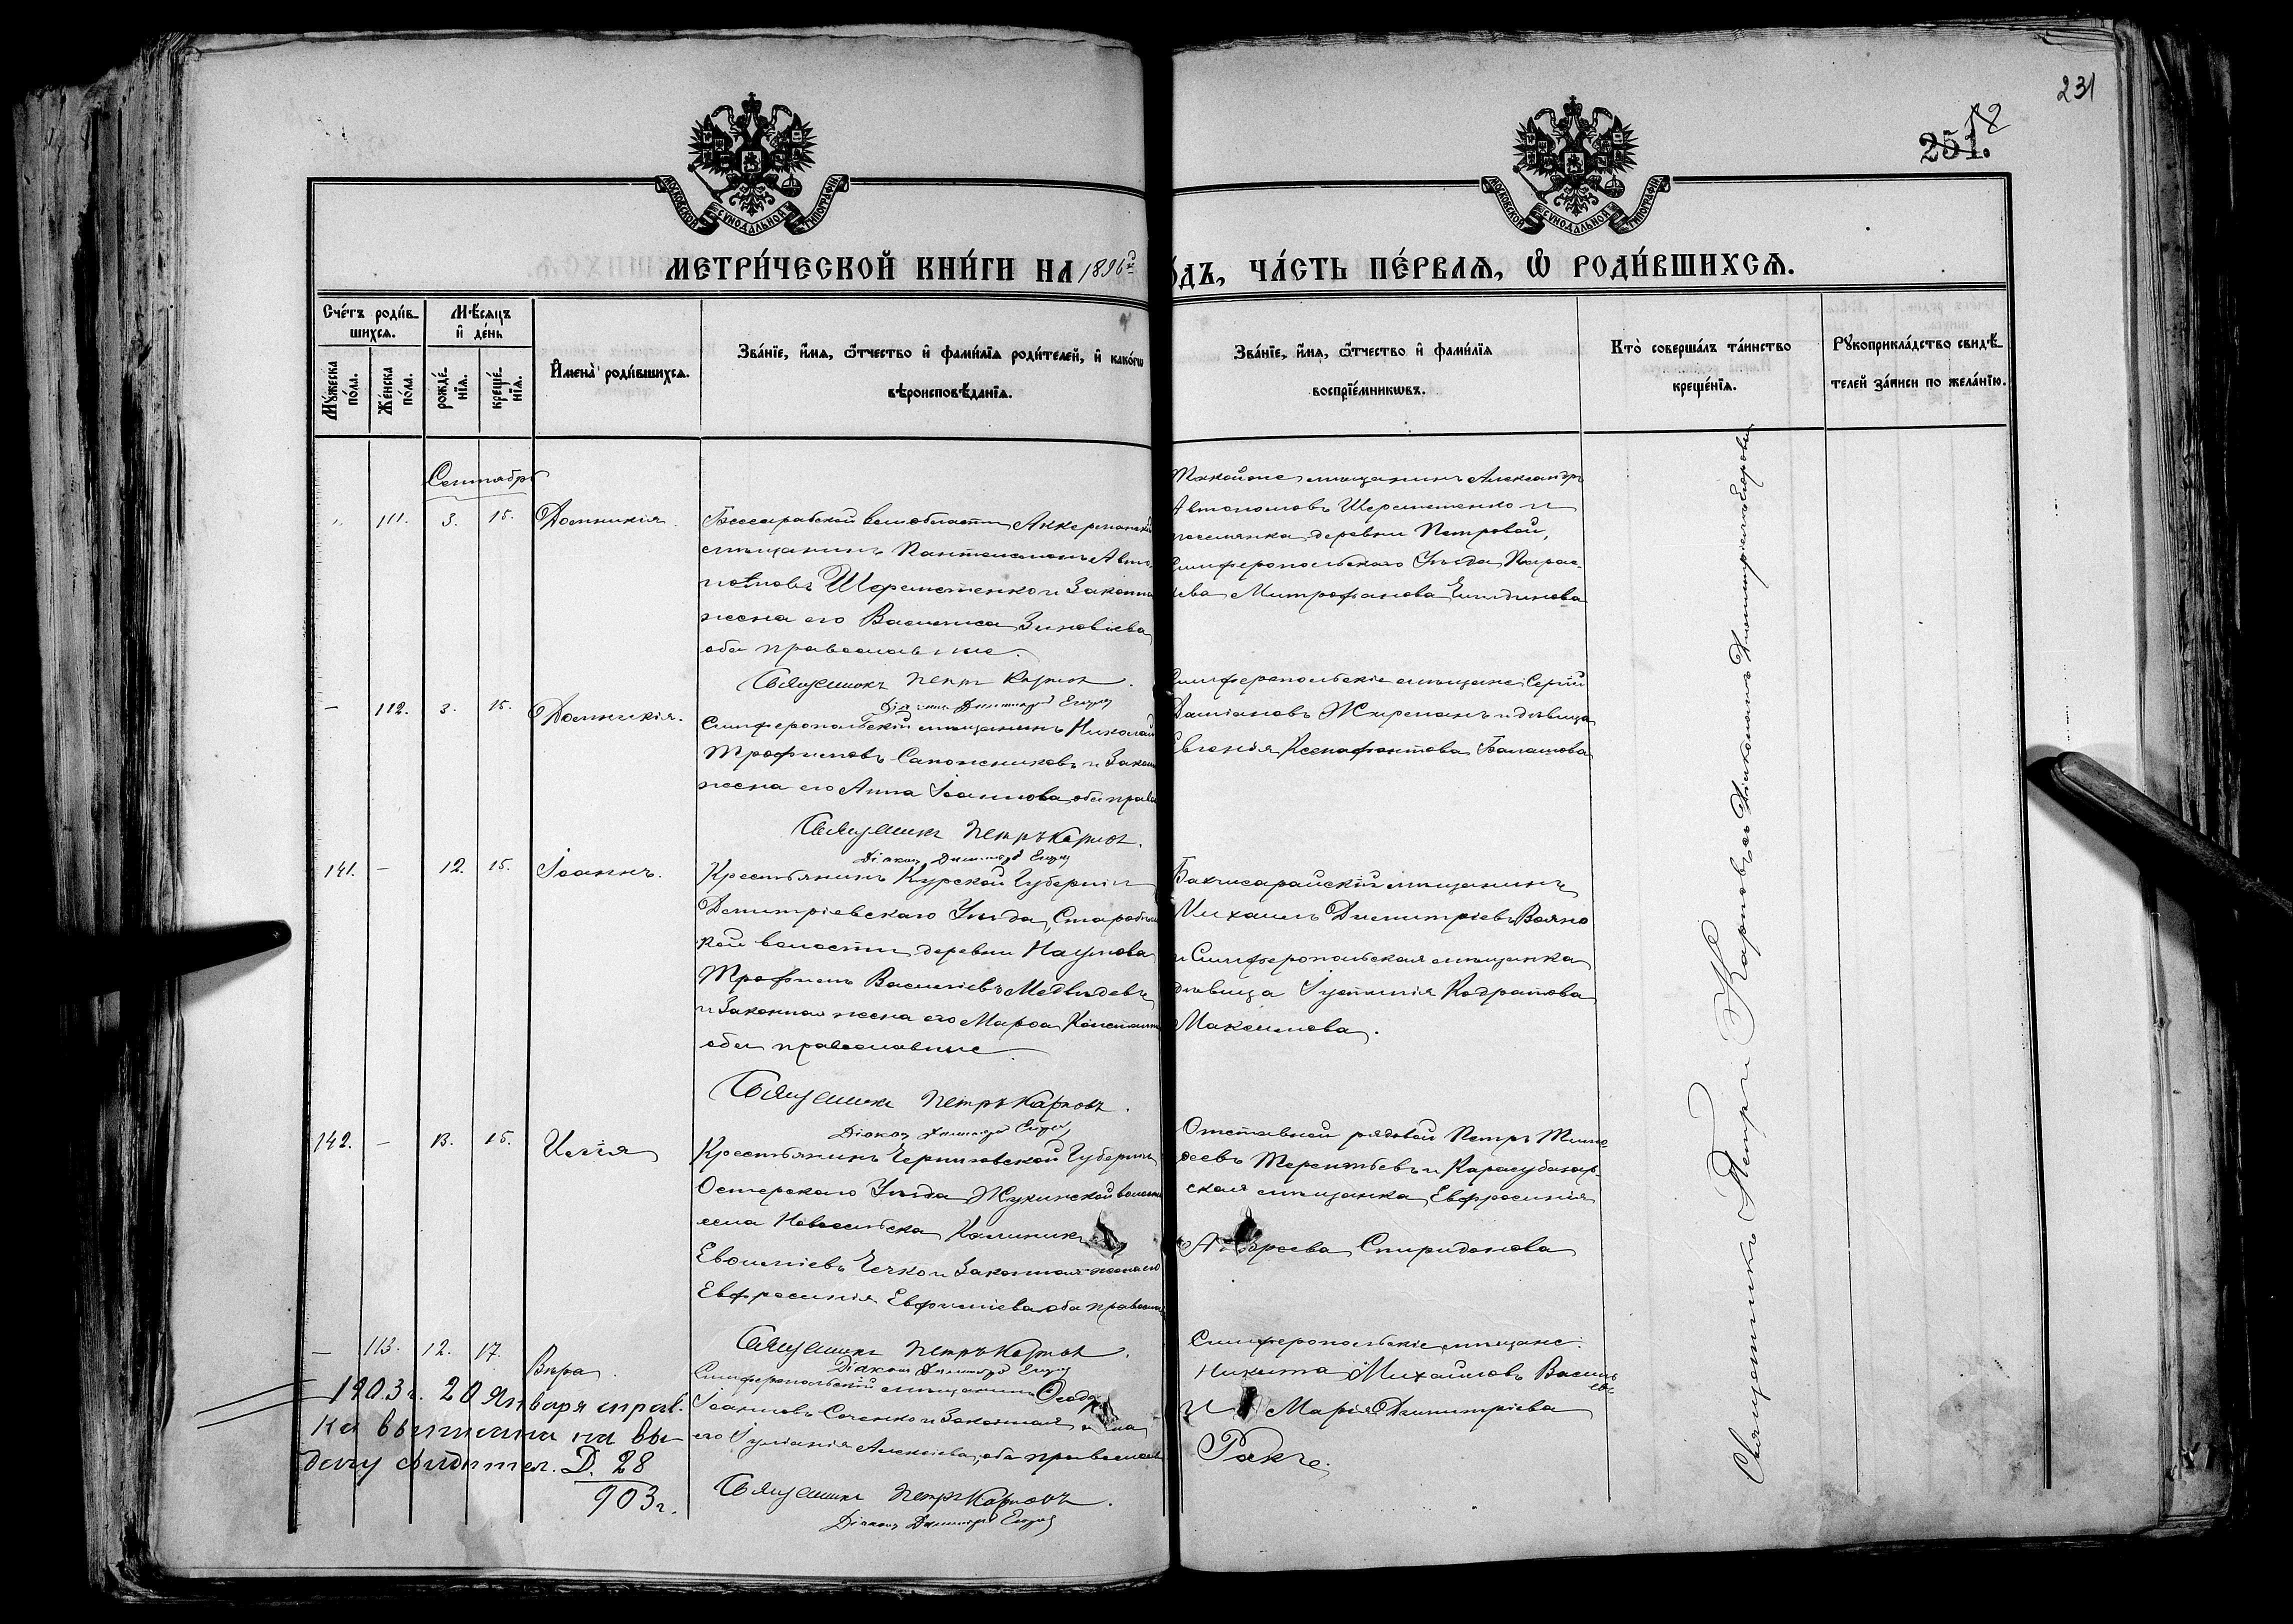 231
251.
12
МОСКОВСКОЙ СѴНОДАЛЬНОЙ ТИПОГРАФІИ
МОСКОВСКОЙ СѴНОДАЛЬНОЙ ТИПОГРАФІИ
МЕТРИ́ЧЕСКОЙ КНИ́ГИ НА 1896й
О́ДЪ, ЧА́СТЬ ПЕ́РВАѦ, Ѽ РОДИ́ВШИХСѦ.
Сче́тъ роди́вшихсѧ.
Мꙋ́жеска по́ла.
Же́нска по́ла.
Мѣ́сѧцъ и҆ де́нь
рожде́нїѧ.
креще́нїѧ.
И҆мена̀ роди́вшихсѧ.
Зва́нїе, и҆́мѧ, ѻ҆́тчество и҆ фами́лїѧ роди́телей, и҆ како́гѡ
вѣроисповѣ́данїѧ.
Зва́нїе, и҆́мѧ, ѻ҆́тчество и҆ фами́лїѧ
воспрїе́мникѡвъ.
Кто̀ соверша́лъ та́инство
креще́нїѧ.
Рꙋкоприкла́дство свидѣ́-
телей за́писи по жела́нїю.
Сентябрь
111. 3. 15. Домникія.
Бессарабской Аккерманскій
мѣщанинъ Пантелеимонъ Авто-
номовъ Шереметенко и законная
жена его Василиса Зиновіева
оба православные.
Священникъ Петръ Карповъ.
Діаконъ Димитрій
Такойже мѣщанинъ Александръ
Автономовъ Шереметенко и
поселянка деревни Петровой,
Симферопольскаго Уѣзда Парас-
кева Митрофанова
– 112. 3. 15. Домникія.
Симферопольскій мѣщанинъ Николай
Трофимовъ Сапожниковъ и закон
жена его Анна Іоаннова, оба прав
Священникъ Петръ Карповъ.
Діаконъ Димитрій
Симферопольскіе мѣщане: Сергій
Даміановъ Жирманъ и дѣвица
Евгенія Ксенофонтова Балашова
141. – 12. 15. Іоаннъ.
Крестьянинъ Курской Губерніи
Дмитріевскаго Уѣзда,
кой волости деревни Наумова
Трофимъ Василіевъ Медвѣдевъ
и законная жена его Марѳа Констант
оба православные.
Священникъ Петръ Карповъ.
Діаконъ Димитрій
Бахчисарайскій мѣщанинъ
Михаилъ Димитріевъ
и Симферопольская мѣщанка
дѣвица Іустинія Кодратова
Максимова.
142. – 13. 15. Илія
Крестьянинъ Черниговской Губерніи
Остерскаго Уѣзда Жукинской волости
села Новоселska Калиникъ
Евѳиміевъ и законная жена его
Евфросинія Евфиміева, оба православн
Священникъ Петръ Карповъ.
Діаконъ Димитрій
Отставной рядовой Петръ Тимо-
ѳеевъ Терентьевъ и Карасубазар-
ская мѣщанка Евфросинія
Спиридонова
– 113. 12. 17. Вѣра.
Симферопольскій мѣщанинъ Ѳеодоръ
Іоанновъ Соченко и законная жена
его Іуліанія Алексіева, оба православн
Священникъ Петръ Карповъ.
Діаконъ Димитрій
Симферопольскіе мѣщане:
Никита Михаиловъ Василь
евъ
и Марія Димитріева
1903 г. 20 Января справ-
ка выписана на вы-
дачу свидѣтел. Д. 28
903 г.
Священникъ Петръ Карповъ съ Діакономъ Димитріемъ